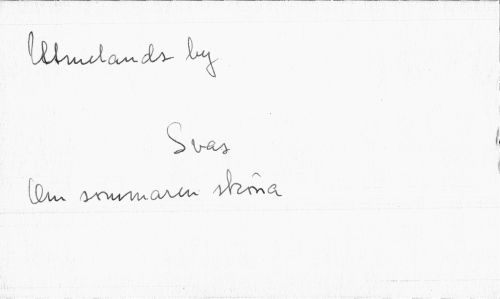 Utmelands by
Svas
Om sommaren sköna